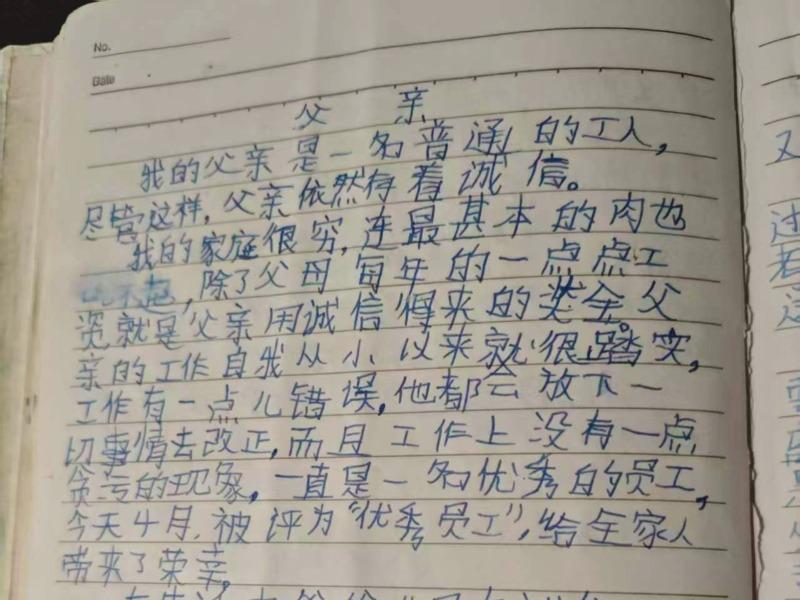 No.
Date
父 亲
我的父亲是一名普通的工人，
尽管这样，父亲依然存着诚信。
我的家庭很穷，连最甚本的肉也
吃不起，除了父母每年的一点点工
资就是父亲用诚信得来的奖金。父
亲的工作自我从小以来就很踏实，
工作有一点儿错误，他都会放下一
切事情去改正，而且工作上没有一点
贪污的现象，一直是一名优秀的员工，
今天4月，被评为“优秀员工”，给全家人
带来了荣幸。
又